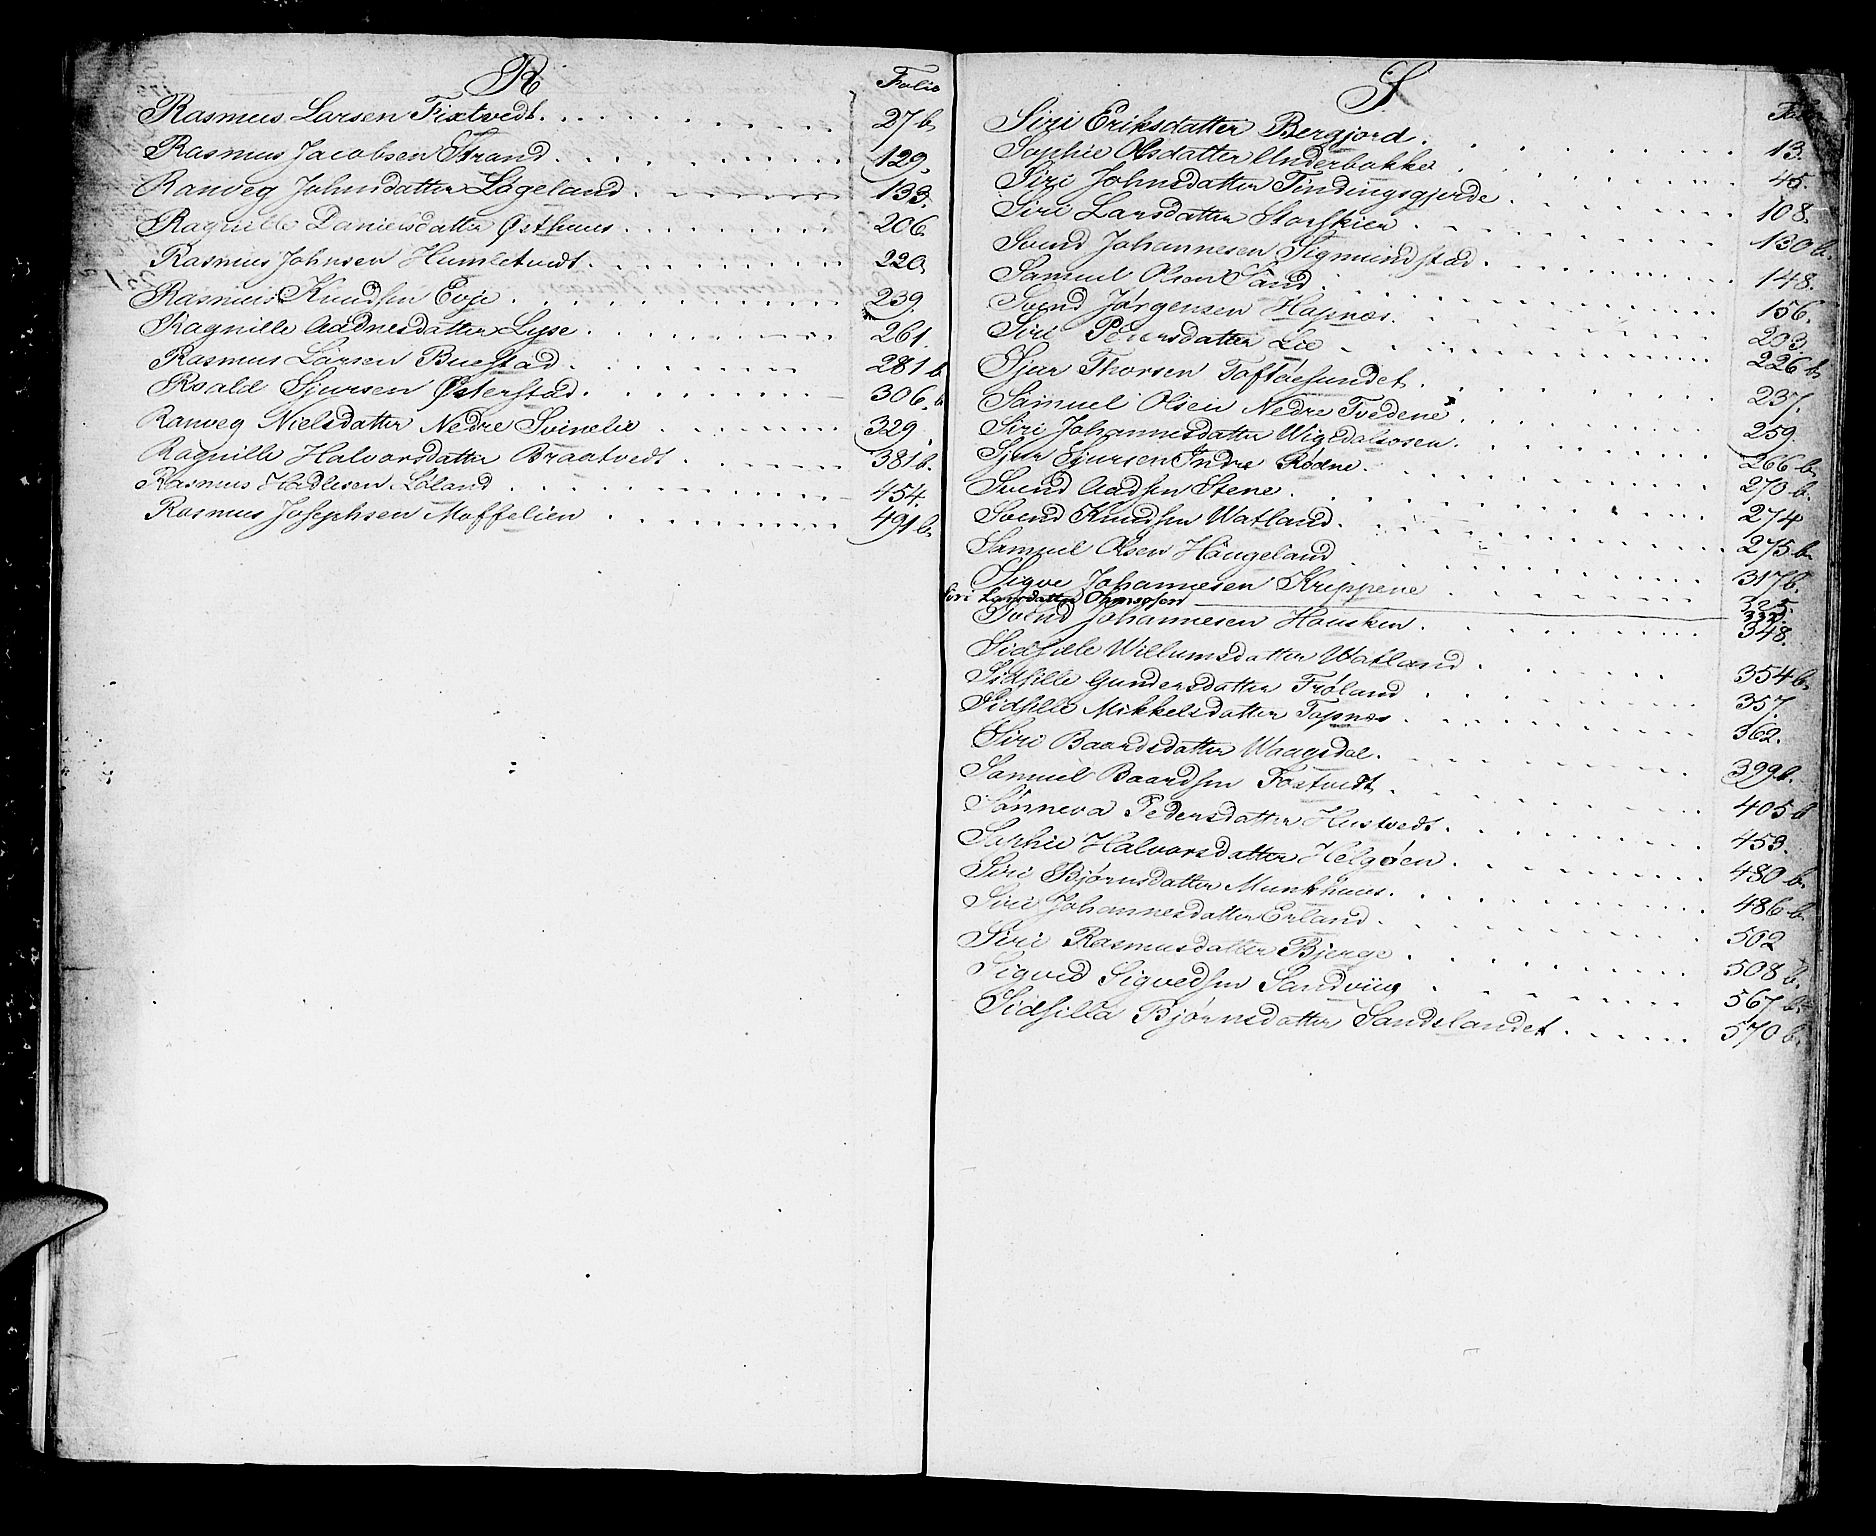 R
Folio
Rasmus Larsen Fixtvedt. 27 b.
Rasmus Jacobsen Strand 129.
Ranveg Johnsdatter Løgeland 133.
Ragnille Danielsdatter Østhuus 206.
Rasmus Johnsen Humletvedt. 220.
Rasmus Knudsen Evje 239.
Ragnille Aadnesdatter Lyse 261.
Rasmus Larsen Buestad. 281 b.
Roald Sjursen Østerstad. 306. b.
Ranveg Nielsdatter Nedre Svinelie 329.
Ragnille Halvorsdatter Braatvedt 381 b.
Rasmus Hadlesen Løland 454.
Rasmus Josephsen Moffelien 491 b.
S
Folio
Siri Eriksdatter Bergjord. 13.
Sophie Olsdatter Underbakke 45.
Siri Johnsdatter Tindingsgjerde 108.
Siri Larsdatter Storskier 130 b.
Svend Johannesen Sigmundstad 148.
Samuel Olsen Sand 156.
Svend Jørgensen Hapnes. 203.
Siri Pedersdatter Lie 226 b.
Sjur Thorsen Toftøesundet 237.
Samuel Olsen Nedre Tvedene 259.
Siri Johannesdatter Wigedalsosen. 266 b.
Sjur Sjursen Indre Rødne. 270 b.
Svend Aadsen Stene. 274
Svend Knudsen Watland. 275 b.
Samuel Olsen Haugeland 317 b.
Sigve Johannesen Krippene 325.
Siri Larsdatter 332.
Svend Johannesen Housken. 348.
Sidsele Willumsdatter Watland 354 b.
Sidselle Gundersdatter Frøland 357.
Sidselle Mikkelsdatter Tapnes 362.
Siri Baardsdatter Waagsdal. 399 b.
Samuel Baardsen Foxtvedt 405 b
Sønneva Pedersdatter Hustvedt. 453.
Sophie Halvorsdatter Helgøen 480 b.
Siri Bjørnsdatter Munkhuus. 486 b.
Siri Johannesdatter Erland 502
Siri Rasmusdatter Bjerge 508 b.
Sigved Sigvedsen Sandviig 567 b.
Sidsilla Bjørnsdatter Sandslandet. 570 b.